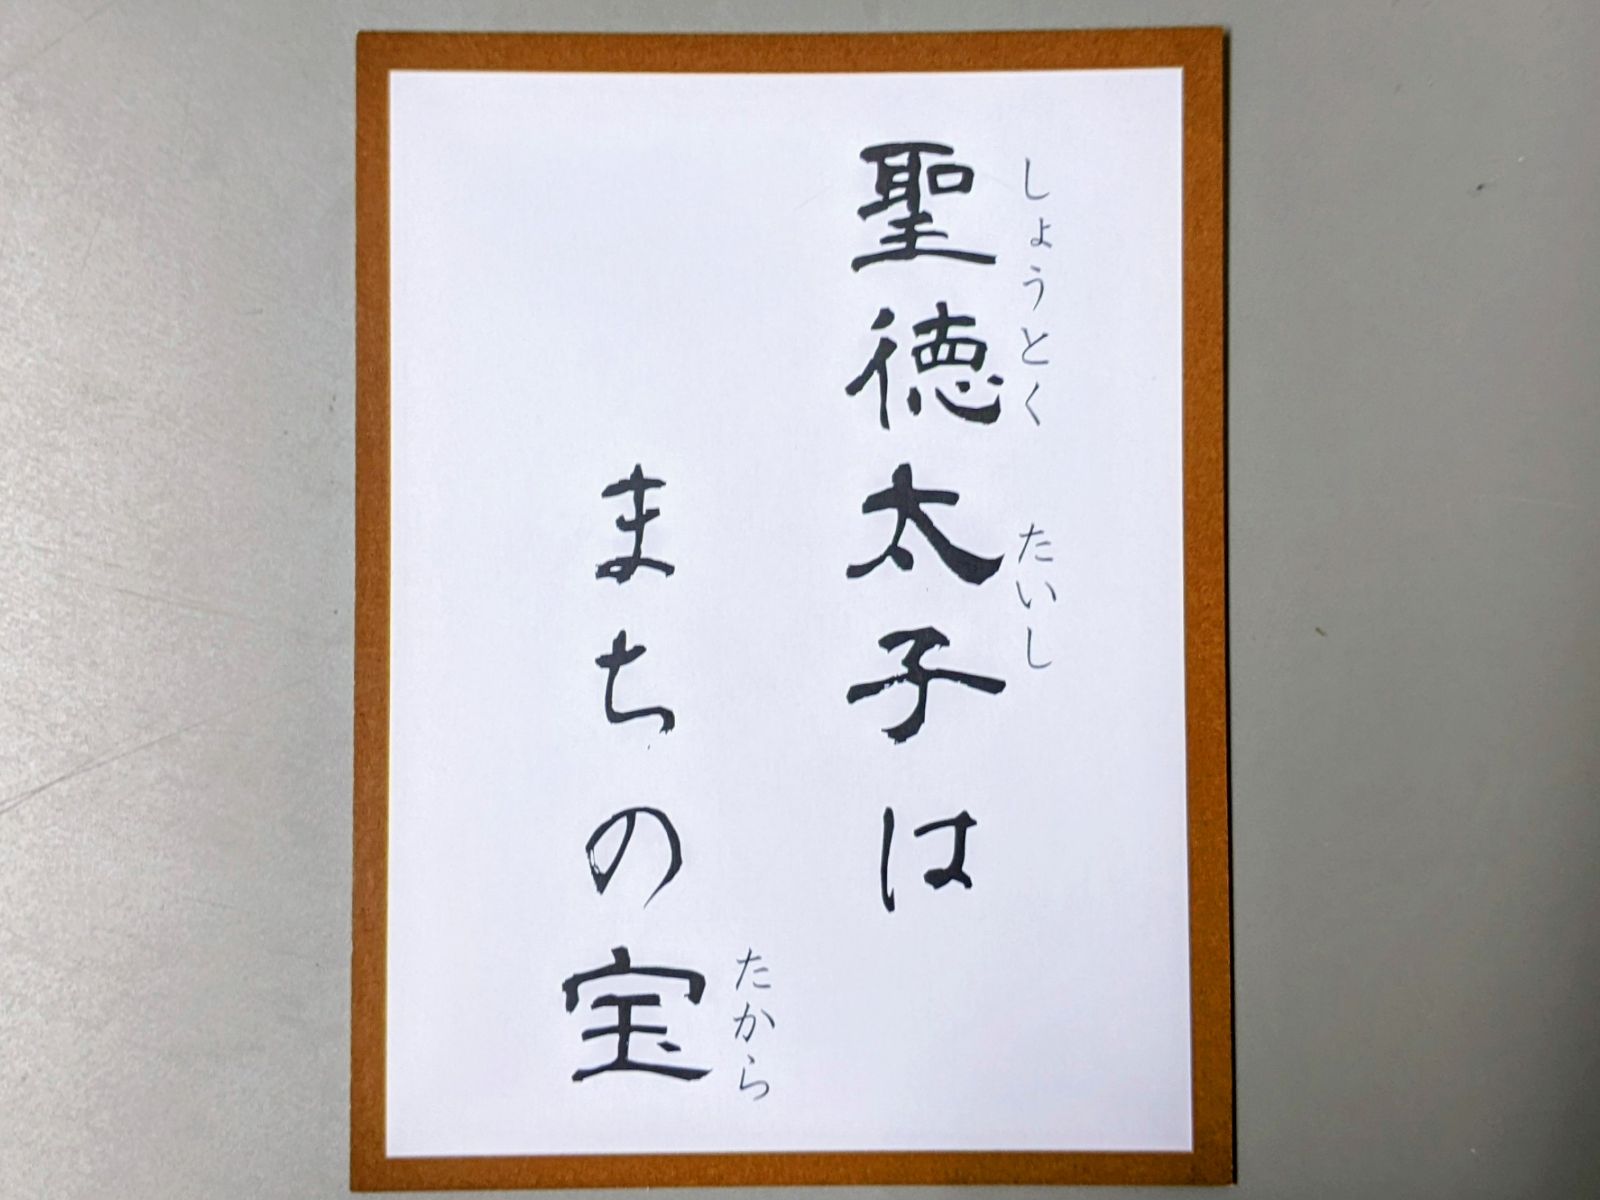 聖徳太子は
しょうとく たいし
まちの宝
たから